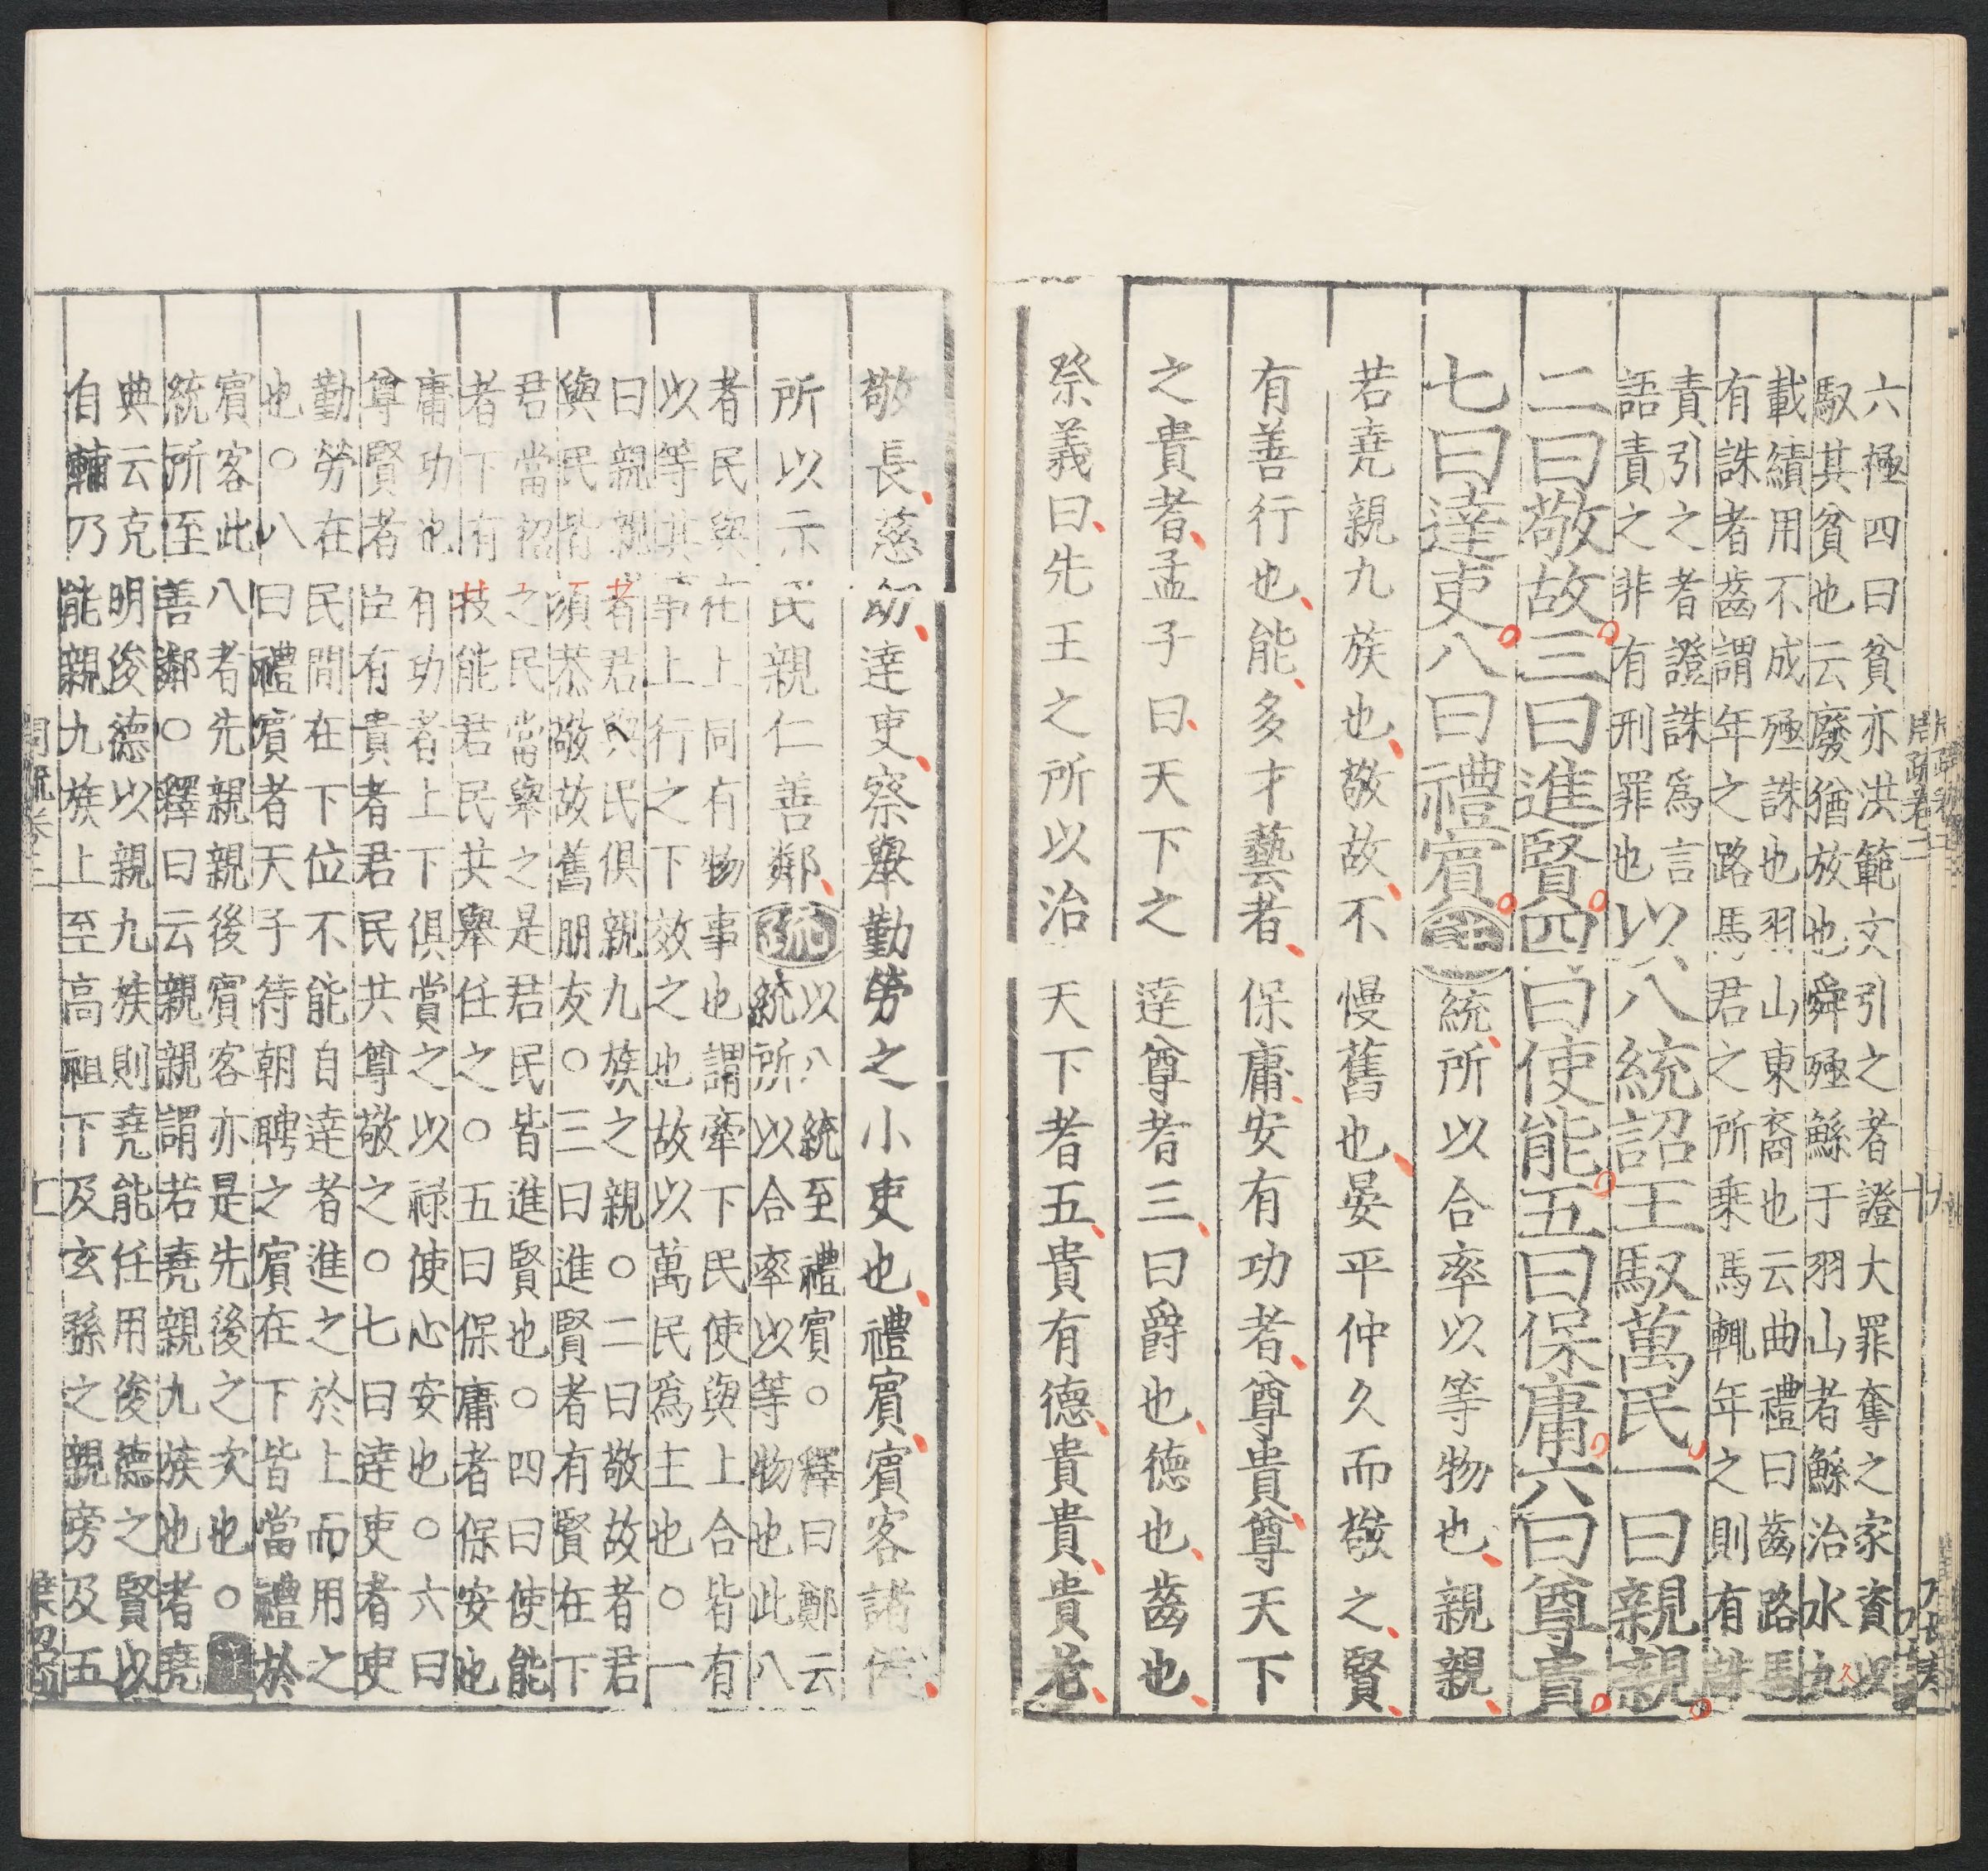 六極四曰貧亦洪範文引之者證大罪奪之家資
馭其貧也云廢猶放也舜殛鯀于羽山者鯀治水九
載績用不成殛誅也羽山東裔也云曲禮曰齒路馬
有誅者齒謂年之路馬君之所乗馬輒年之則有
責引之者證誅為言
語責之非有刑罪也以八統詔王馭萬民一曰親親
二曰敬故三曰進賢四曰使能五曰保庸六曰尊貴
七曰達吏八曰禮賓注統所以合率以等物也親親
若堯親九族也敬故不慢舊也晏平仲久而敬之賢
有善行也能多才藝者保庸安有功者尊貴尊天下
之貴者孟子曰天下之達尊者三曰爵也德也齒也
祭義曰先王之所以治天下者五貴有德貴貴貴老
敬長慈幼達吏察舉勤勞之小吏也禮賓賓客諸侯
所以示民親仁善鄰疏以八統至禮賓○釋曰鄭云
統所以合率以等物也此八
者民與在上同有物事也謂牽下民使與上合皆有
以等其事上行之下效之也故以萬民為主也○一
曰親親者君與民俱親九族之親○二曰敬故者君
與民皆須恭敬故舊朋友○三曰進賢者有賢在下
君當招之民當舉之是君民皆進賢也○四曰使能
者下有技能君民共舉任之○五曰保庸者保安也
庸功也有功者上下俱賞之以祿使心安也○六曰
尊賢者臣有貴者君民共尊敬之○七曰達吏者吏
勤勞在民間在下位不能自達者進之於上而用之
也○八曰禮賓者天子待朝聘之賓在下皆當禮於
賓客此八者先親親後賓客亦是先後之次也○
統所至善鄰○釋曰云親親謂若堯親九族也者堯
典云克明俊德以親九族則堯能任用俊德之賢以
自輔乃能親九族上至高祖下及玄孫之親旁及五